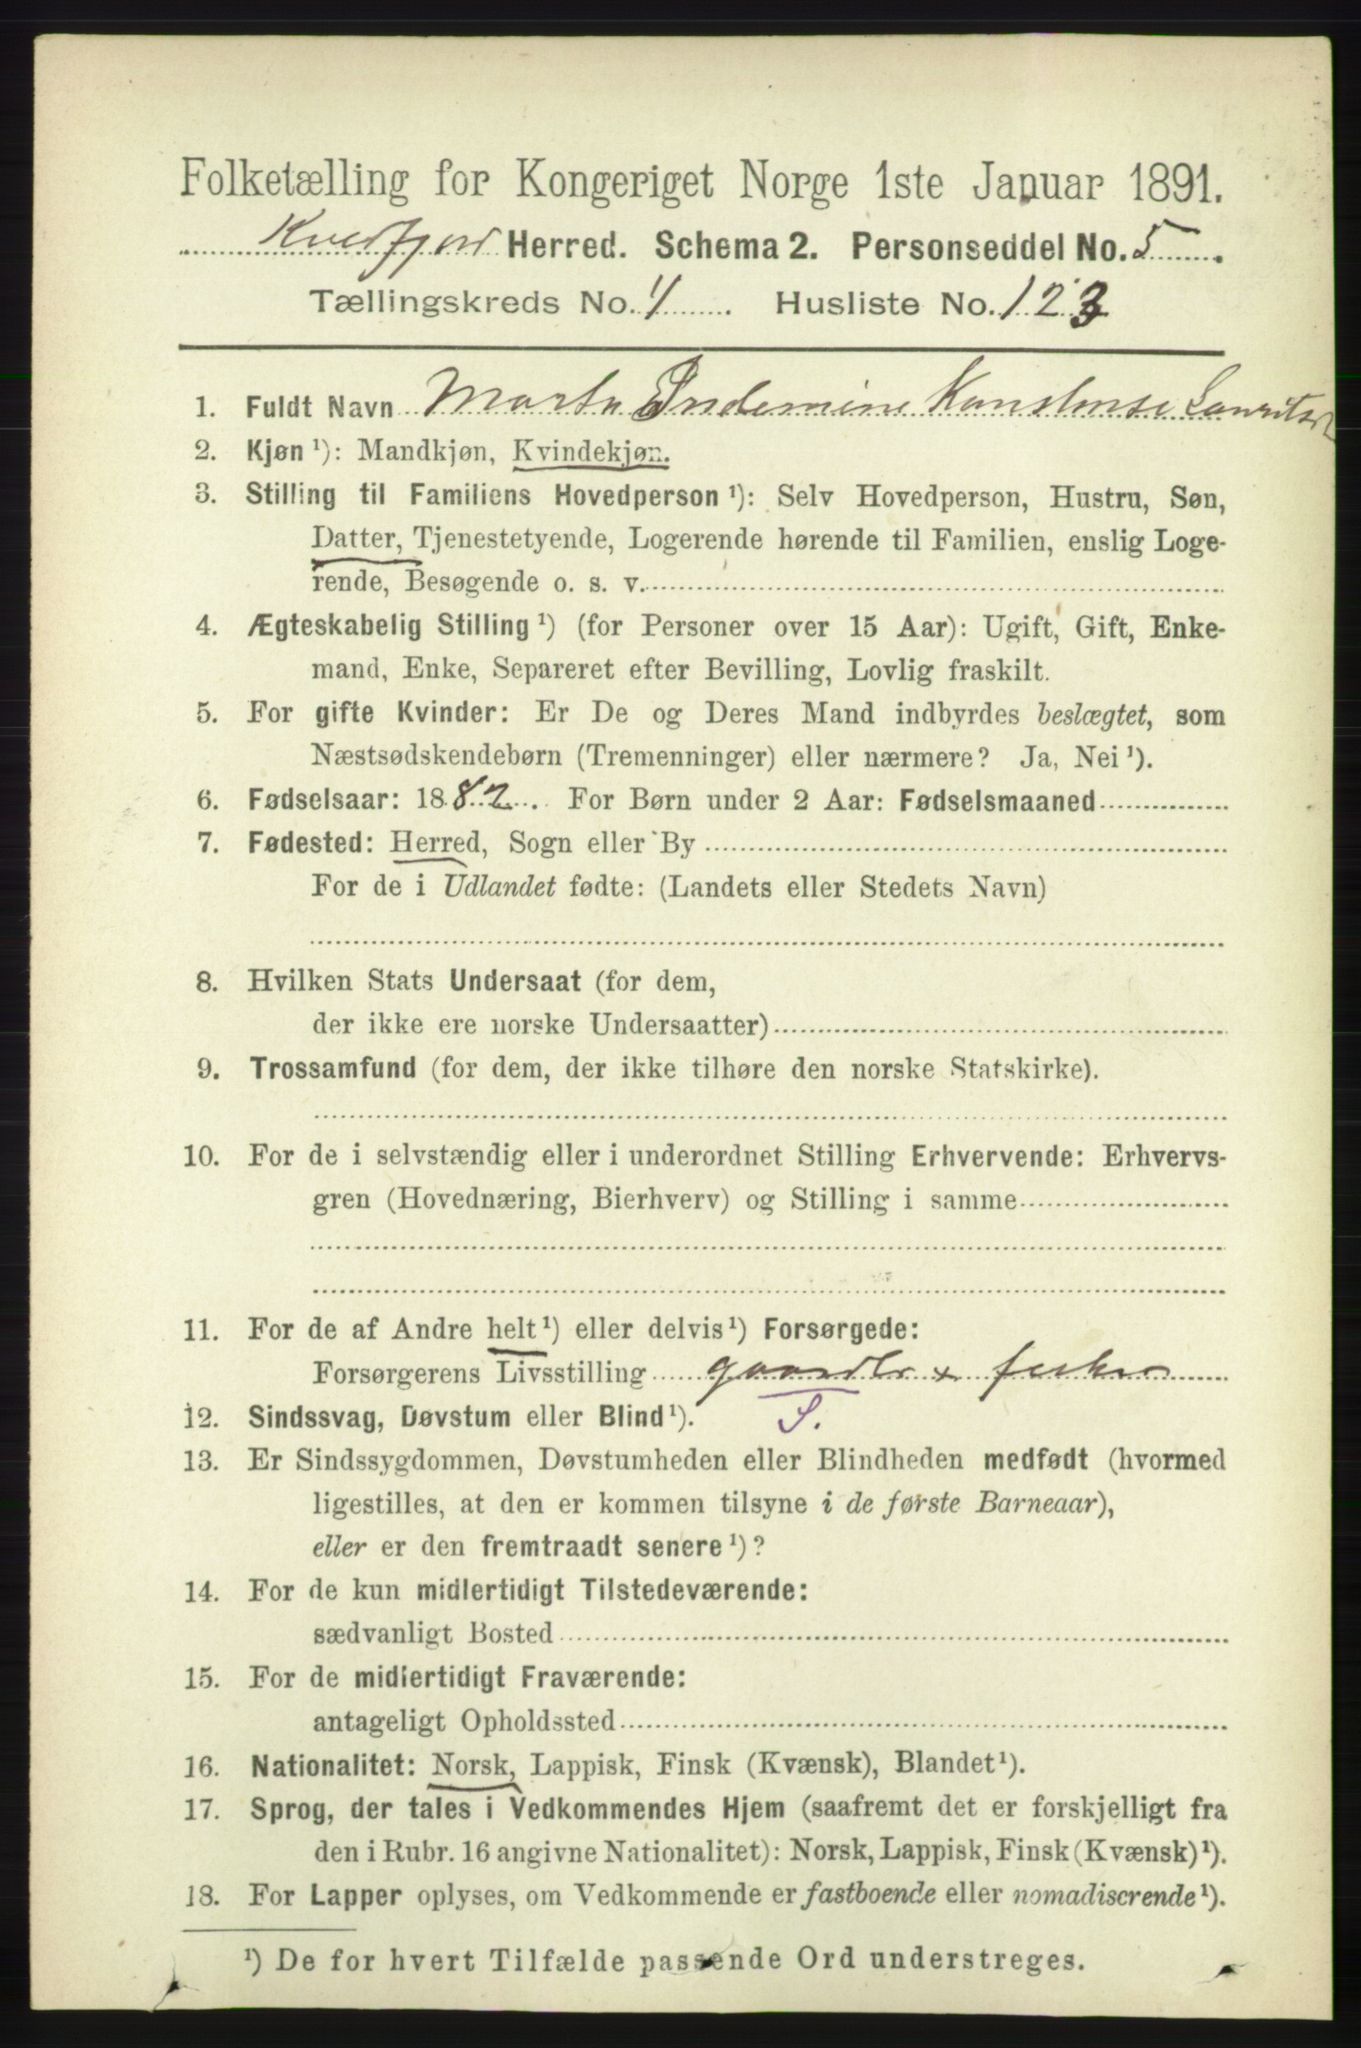 Folketælling for Kongeriget Norge 1ste Januar 1891.
Kvedfjord Herred. Schema 2. Personseddel No. 5
Tællingskreds No. 4 Husliste No. 123
1. Fuldt Navn Marta Indemine Konstanse
2. Kjøn ¹): Mandkjøn, Kvindekjøn.
3. Stilling til Familiens Hovedperson ¹): Selv Hovedperson, Hustru, Søn,
Datter, Tjenestetyende, Logerende hørende til Familien, enslig Loge-
rende, Besøgende o. s. v.
4. Ægteskabelig Stilling ¹) (for Personer over 15 Aar): Ugift, Gift, Enke-
mand, Enke, Separeret efter Bevilling, Lovlig fraskilt.
5. For gifte Kvinder: Er De og Deres Mand indbyrdes beslægtet, som
Næstsødskendebørn (Tremenninger) eller nærmere? Ja, Nei ¹).
6. Fødselsaar: 1882. For Børn under 2 Aar: Fødselsmaaned
7. Fødested: Herred, Sogn eller By
For de i Udlandet fødte: (Landets eller Stedets Navn)
8. Hvilken Stats Undersaat (for dem,
der ikke ere norske Undersaatter)
9. Trossamfund (for dem, der ikke tilhøre den norske Statskirke).
10. For de i selvstændig eller i underordnet Stilling Erhvervende: Erhvervs-
gren (Hovednæring, Bierhverv) og Stilling i samme
11. For de af Andre helt ¹) eller delvis ¹) Forsørgede:
Forsørgerens Livsstilling gaardbr x fisker
12. Sindssvag, Døvstum eller Blind ¹). S.
13. Er Sindssygdommen, Døvstumheden eller Blindheden medfødt (hvormed
ligestilles, at den er kommen tilsyne i de første Barneaar),
eller er den fremtraadt senere ¹)?
14. For de kun midlertidigt Tilstedeværende:
sædvanligt Bosted
15. For de midlertidigt Fraværende:
antageligt Opholdssted
16. Nationalitet: Norsk, Lappisk, Finsk (Kvænsk), Blandet ¹).
17. Sprog, der tales i Vedkommendes Hjem (saafremt det er forskjelligt fra
den i Rubr. 16 angivne Nationalitet): Norsk, Lappisk, Finsk (Kvænsk) ¹).
18. For Lapper oplyses, om Vedkommende er fastboende eller nomadiserende ¹).
¹) De for hvert Tilfælde passende Ord understreges.